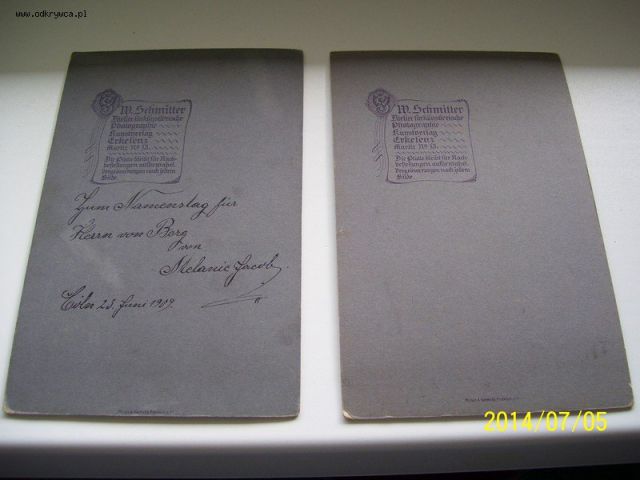 www.odkrywca.pl
W. Schmitter
Atelier für künstlerische
Photographie
Kunstverlag
Erkelenz
Markt No 13.
Die Platte bleibt für Nach-
bestellungen aufbewahrt.
Vergrösserungen nach jedem
Bilde.
Zum Namenstag für
Herrn von Berg
von
Melanie Jacob
Cöln 23. Juni 1909.
W. Schmitter
Atelier für künstlerische
Photographie
Kunstverlag
Erkelenz
Markt No 13.
Die Platte bleibt für Nach-
bestellungen aufbewahrt.
Vergrösserungen nach jedem
Bilde.
2014/07/05